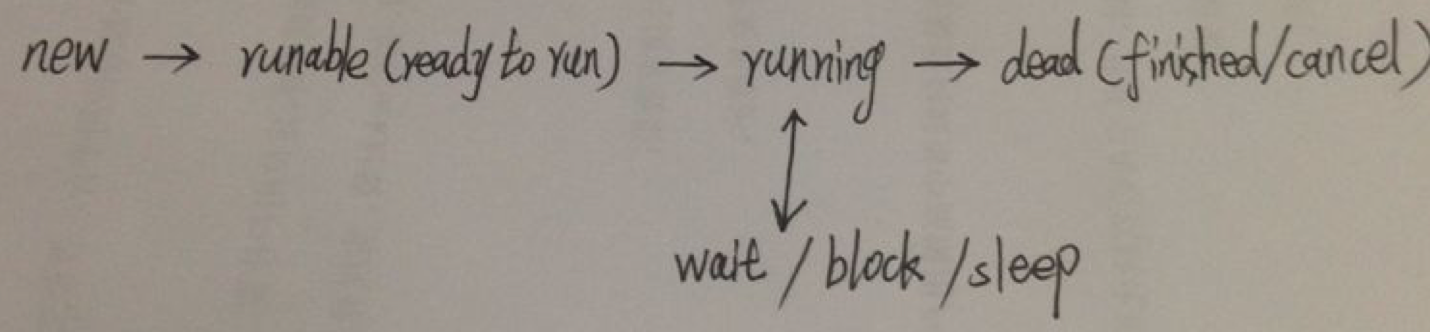 new → runable (ready to run) → running → dead (finished/cancel)
wait / block / sleep